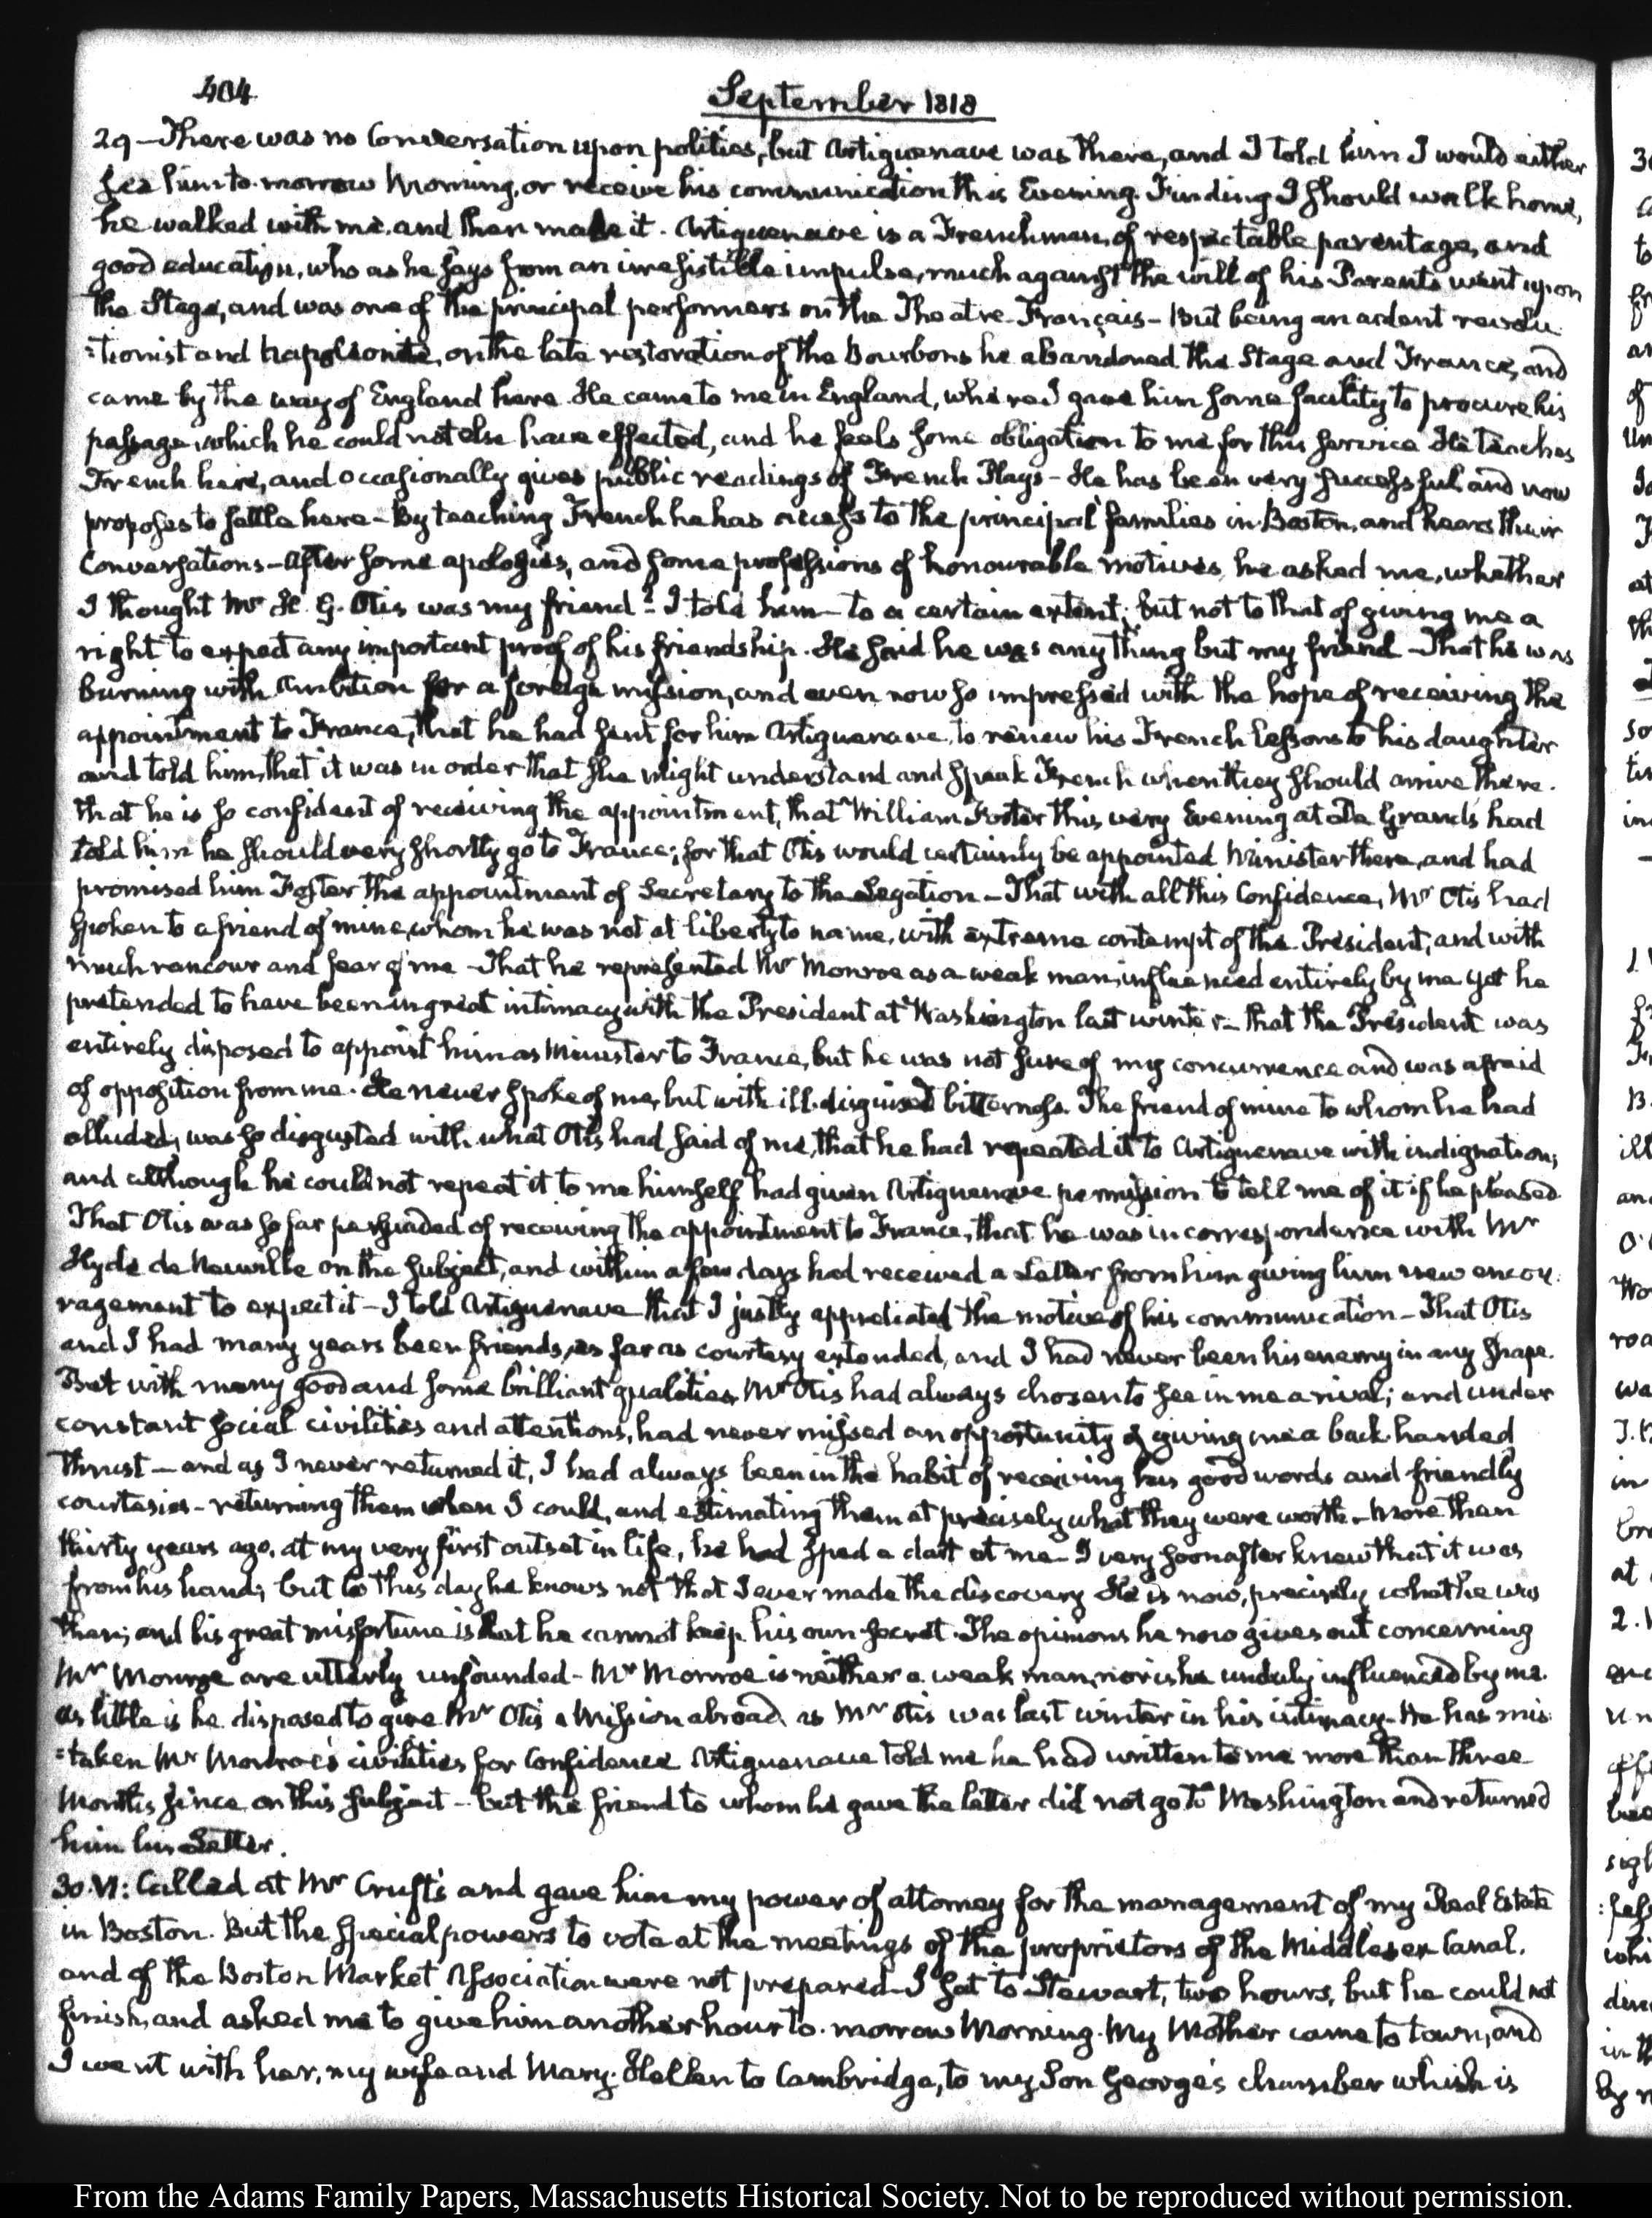 404
September 1818
29 – There was no Conversation upon politics, but Artiguenave was there, and I told him I would either
see him to-morrow Morning, or receive his communication this Evening. Finding I should walk home,
he walked with me, and then made it. Artiguenave is a Frenchman, of respectable parentage, and
good education, who as he says from an irresistible impulse, much against the will of his Parents went upon
the Stage, and was one of the principal performers on the Theatre Français – But being an ardent revolu
:tionist and Napoleonite, on the late restoration of the Bourbons he abandoned the Stage and France, and
came by the way of England here. He came to me in England, where I gave him some facility to procure his
passage, which he could not else have effected, and he feels some obligation to me for this service He teaches
French here, and occasionally gives public readings of French Plays – He has been very successful and now
proposes to settle here – By teaching French he has access to the principal families in Boston, and hears their
Conversations – After some apologies, and some professions of honourable motives, he asked me, whether
I thought Mr H. G. Otis was my friend? I told him – to a certain extent; but not to that of giving me a
right to expect any important proof of his friendship. He said he was any thing but my friend – That he was
burning with Ambition for a foreign mission, and even now so impressed with the hope of receiving the
appointment to France, that he had sent for him Artiguenave, to renew his French Lessons to his daughter
and told him, that it was in order that she might understand and speak French when they should arrive there.
that he is so confident of receiving the appointment, that William Foster this very Evening at De Grand's had
told him he should very shortly go to France; for that Otis would certainly be appointed Minister there, and had
promised him Foster the appointment of Secretary to the Legation – That with all this Confidence, Mr Otis had
spoken to a friend of mine, whom he was not at liberty to name, with extreme contempt of the President, and with
much rancour and fear of me – That he represented Mr Monroe as a weak man, influenced entirely by me yet he
pretended to have been in great intimacy with the President at Washington last winter – that the President was
entirely disposed to appoint him as Minister to France, but he was not sure of my concurrence and was afraid
of opposition from me. He never spoke of me, but with ill-disguised bitterness. The friend of mine to whom he had
alluded, was so disgusted with what Otis had said of me, that he had repeated it to Artiguenave with indignation;
and although he could not repeat it to me himself had given Artiguenave permission to tell me of it if he pleased
That Otis was so far persuaded of receiving the appointment to France, that he was in correspondence with Mr
Hyde de Neuville on the subject, and within a few days had received a Letter from him giving him new encou
ragement to expect it – I told Artiguenave that I justly appreciated the motive of his communication – That Otis
and I had many years been friends, as far as courtesy extended, and I had never been his enemy in any shape.
But with many good and some brilliant qualities Mr Otis had always chosen to see in me a rival; and under
constant social civilities and attentions, had never missed an opportunity of giving me a back-handed
thrust – and as I never returned it, I had always been in the habit of receiving his good words and friendly
courtesies – returning them when I could, and estimating them at precisely what they were worth – More than
thirty years ago, at my very first outset in life, he had sped a dart at me – I very soon after knew that it was
from his hand; but to this day he knows not that I ever made the discovery He is now, precisely what he was
then; and his great misfortune is that he cannot keep his own secret. The opinions he now gives out concerning
Mr Monroe are utterly unfounded – Mr Monroe is neither a weak man, nor is he unduly influenced by me.
as little is he disposed to give Mr Otis a Mission abroad, as Mr Otis was last winter in his intimacy – He has mis
:taken Mr Monroe's civilities for Confidence Artiguenave told me he had written to me more than three
Months since on this subject – but the friend to whom he gave the letter did not go to Washington and returned
him his Letter.
30. VI: Called at Mr Cruft's and gave him my power of attorney for the management of my Real Estate
in Boston. But the special powers to vote at the meetings of the proprietors of the Middlesex Canal,
and of the Boston Market Association were not prepared – I sat to Stewart, two hours, but he could not
finish, and asked me to give him another hour to-morrow Morning. My Mother came to town, and
I went with her, my wife and Mary Hellen to Cambridge, to my Son George's chamber which is
From the Adams Family Papers, Massachusetts Historical Society. Not to be reproduced without permission.